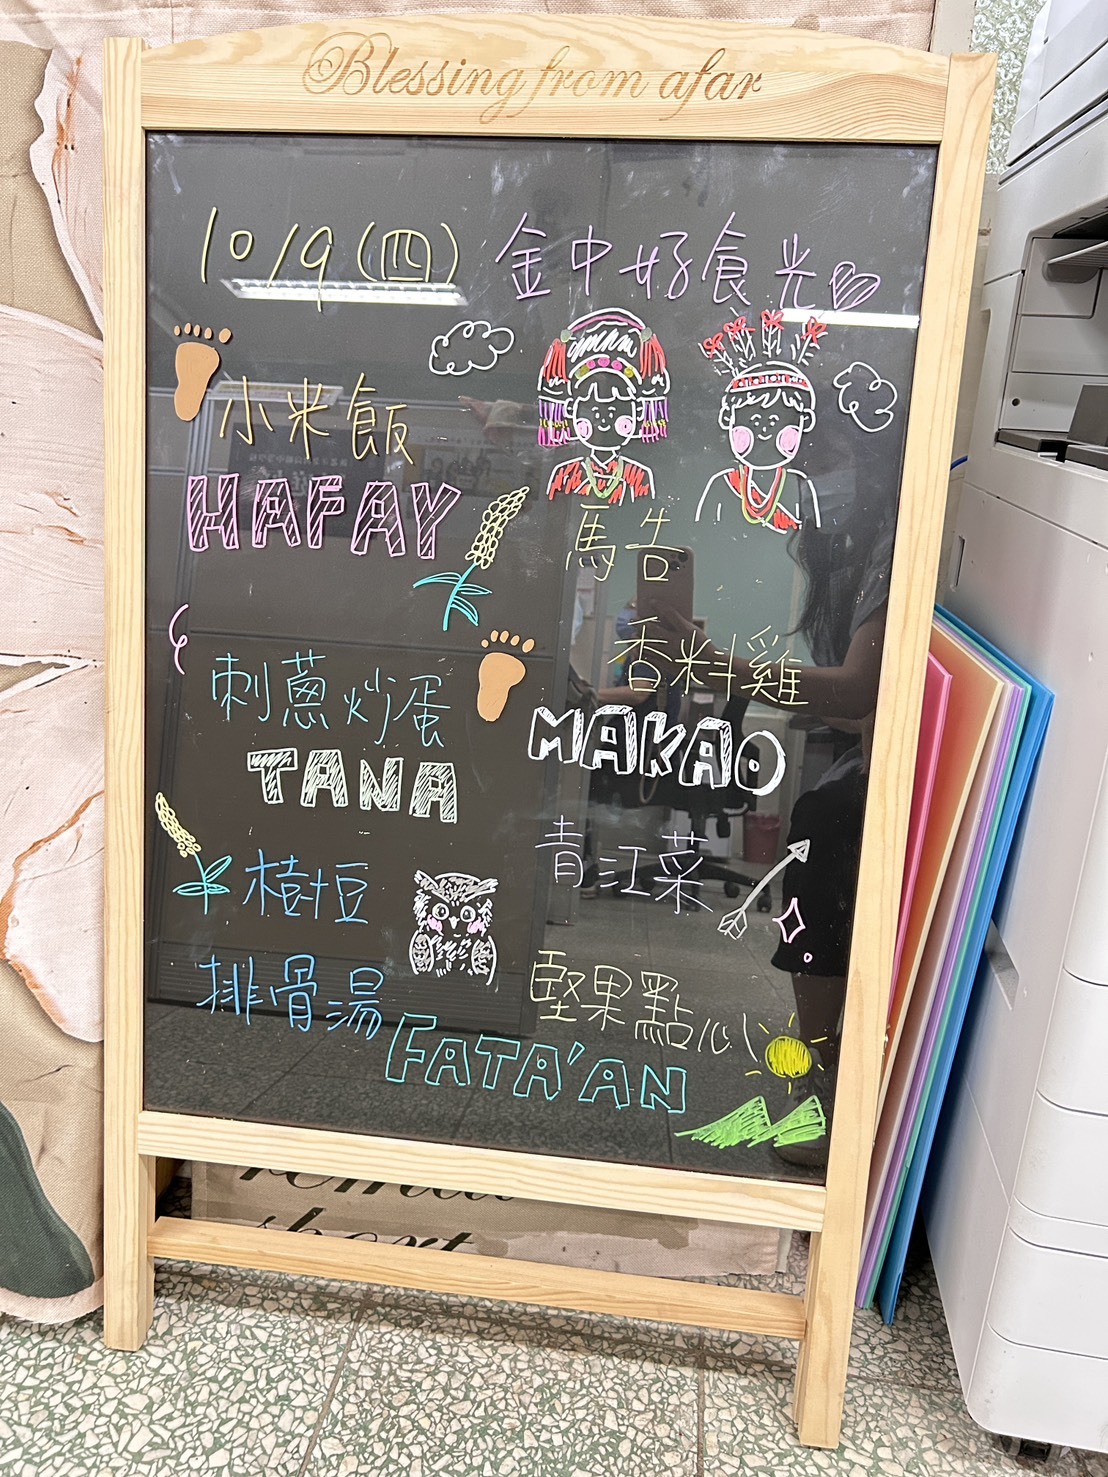 Blessing from afar
10/9(四) 金中好食光
小米飯
HAFAY
刺蔥炒蛋
TANA
樹豆
排骨湯
FATA'AN
馬告
香料雞
MAKAO
青江菜
堅果點心
short